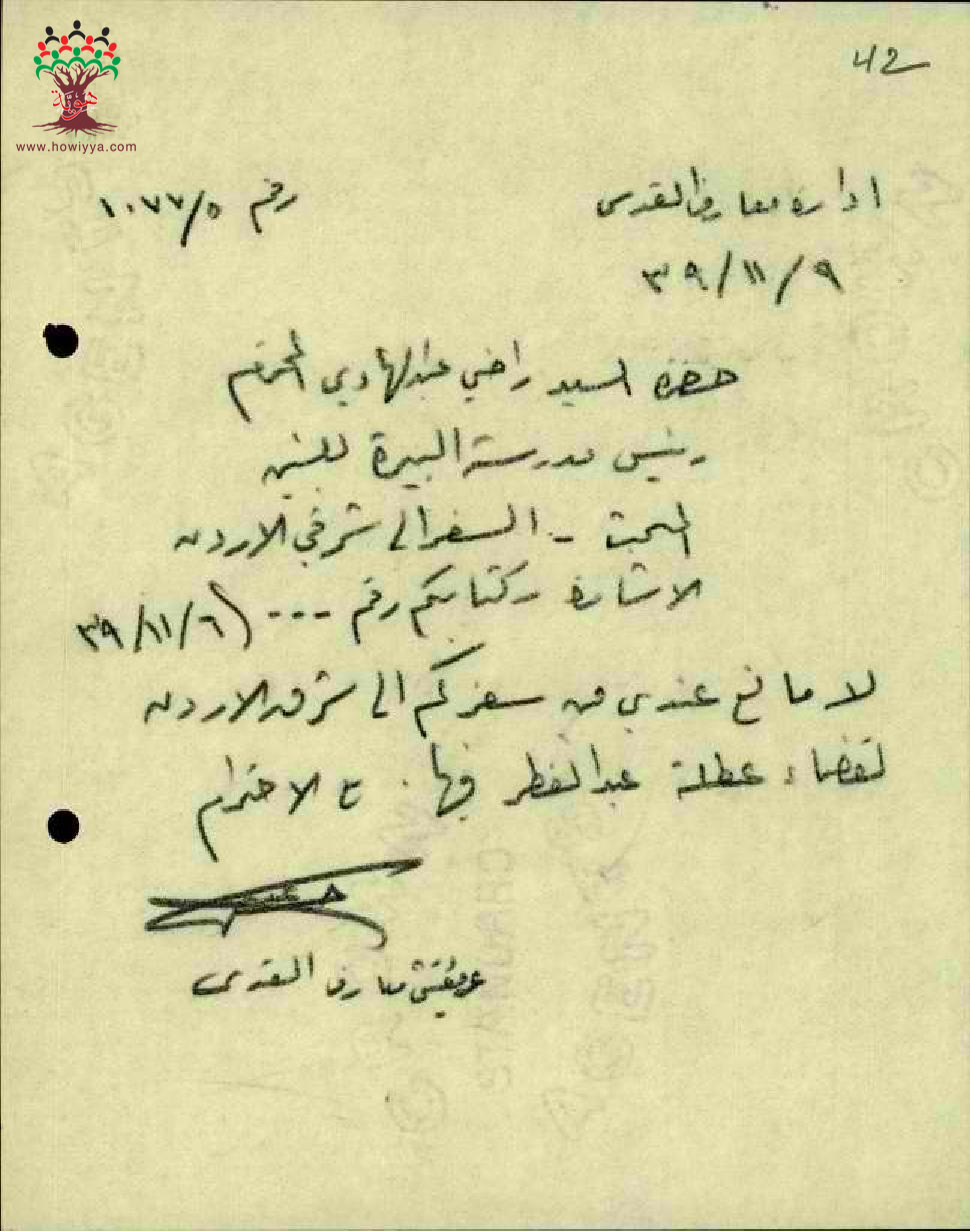 هوية
www.howiyya.com
42
ادارة معارف القدس
رقم ١٠٧٧/٥
٣٩/١١/٩
حضرة السيد راضي عبد الهادي المحترم
رئيس مدرسة البيرة للبنين
المبحث - السفر الى شرقي الاردن
الاشارة - كتابكم رقم --- (٣٩/١١/٦
لا مانع عندي من سفركم الى شرق الاردن
لقضاء عطلة عيد الفطر فيها. مع الاحترام
ع مفتش معارف القدس